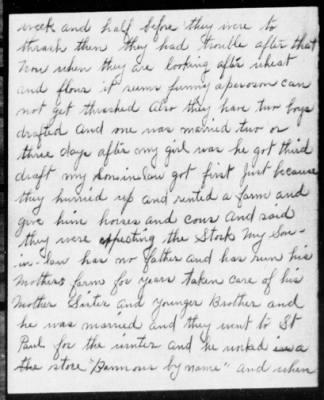 week and half before they were to
thrash then they had trouble after that
Now when they are looking after wheat
and flour it seems funny a person can
not get thrashed Also they have two boys
drafted and one was married two or
three days after my girl was he got third
draft my soninlaw got first just because
they hurried up and rented a farm and
give him horses and cows and said
they were expecting the Stork My Son-
in-law has no father and has run his
Mothers farm for years taken care of his
Mother Sister and Younger Brother and
he was married and they went to St
Paul for the winter and he worked in a
the store "Bannons by name" and when